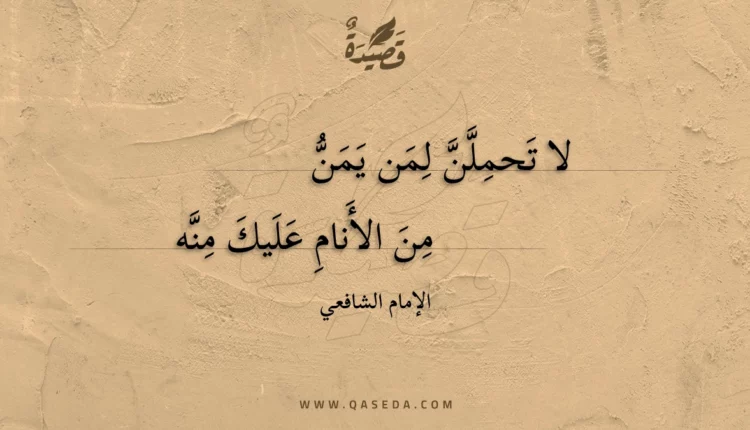 قَصِيدَةٌ
لا تَحمِلَنَّ لِمَن يَمَنُّ
مِنَ الأَنامِ عَلَيكَ مِنَّه
الإمام الشافعي
WWW.QASEDA.COM